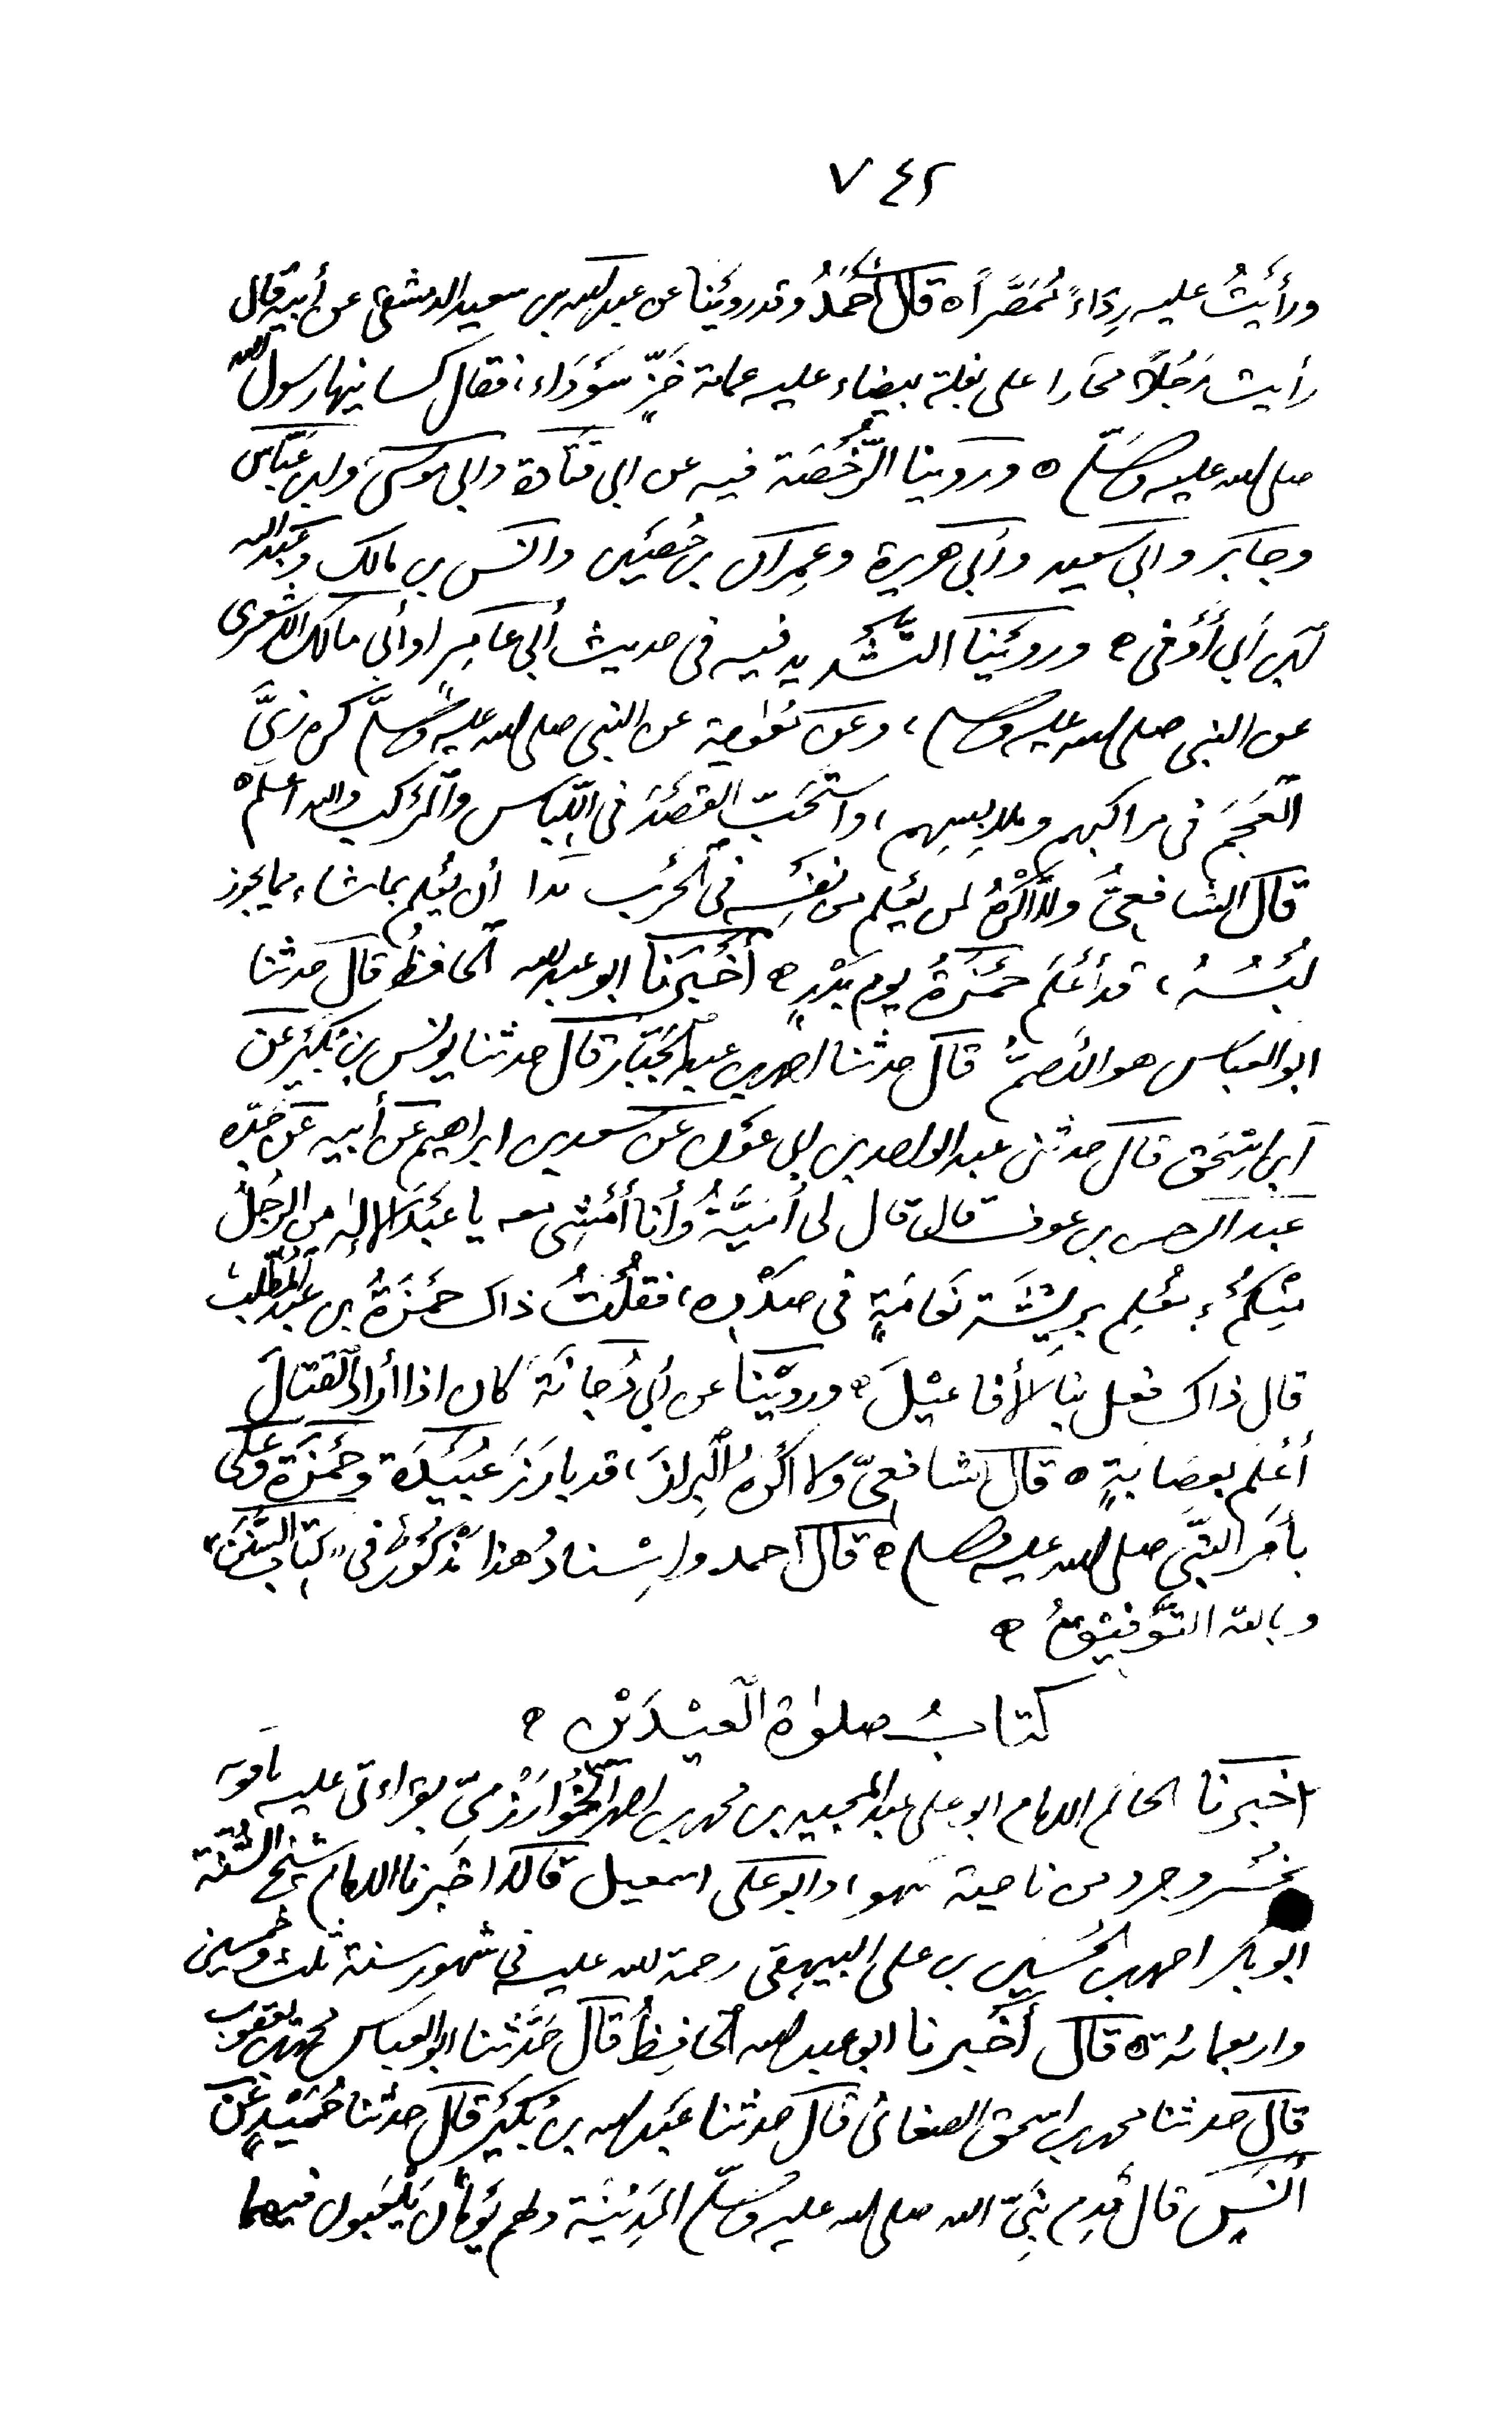 ٧٤٢
ورأيتُ عليه رداءً مُمَصَّرًا ٥ قال أحمدُ وقد روينا عن عبد الله بن سعيد الدمشقى عن أبيه قال
رأيت رجلاً بخارا على بغلة بيضاء عليه عمامة خَزٍّ سَوْدَاء، فقال كسانيها رسول الله
صلى الله عليه وسلّم ٥ وروينا الرُّخْصَة فيه عن ابى قتادة وابى موسى وابن عبّاس
وجابر وابى سعيد وأبى هريرة وعِمران بن حُصَين وانس بن مالك وعبد الله
بن أبى أَوْفى ٥ ورَوَيْنا التَّشْديد فيه فى حديث أبى عامِر او أبى مالك الاشعرى
عن النبى صلى الله عليه وسلم، وعن معٰوية عن النبى صلى الله عليه وسلَّم كره زِىَّ
العَجَم فى مراكبهم وملابِسِهم، واستحَبّ القَصْدَ فى اللِّباس والمَركب والله اعلم ٥
قال الشافعىُّ ولا أكْرَهُ لمن يعلم من نفسه فى الحَرْب بلاءً أن يُعْلِم بما شاء مما يجوز
لُبْسُهُ، قد أَعْلَم حَمْزَةُ يوم بَدْرٍ ٥ أَخْبَرنا ابو عبد الله الحافظُ قال حدثنا
ابو العباس هو الأصَمُّ قال حدثنا احمد بن عبد الجَبّار قال حدثنا يونس بن بُكَيْر عن
ابن اسْحٰق قال حدثنى عبد الواحد بن ابى عَوْن عن سعد بن ابراهيم عن أبيه عن جدّه
عبد الرحمن بن عوف قال قال لى أُمَيَّةُ وأنا أَمْشِى معه يا عَبْدَ الإلٰه من الرَّجُلُ
مِنْكُمْ مُعْلِم بِرِيشَة نَعَامَةٍ فى صَدْرِه، فقُلْتُ ذاك حَمْزَةُ بن عبد المُطَّلب،
قال ذاك فعل بنا الأفاعيْلَ ٥ وروَيْنا عن أبى دُجانَة كان اذا أراد القتالَ
أَعْلَم بعِصَابَةٍ ٥ قال الشافعىّ ولا أكْرَهُ البِرازَ، قد بارَزَ عُبَيْدَة وحَمْزَة وعلى
بأَمْر النبّى صلى الله عليه وسلم ٥ قال احمد وإسْنادُ هذا مذكورٌ فى "كتاب السُّنَن"
وبالله التَّوفيْقُ ٥
كتابُ صلوٰة العيْدَيْن ٥
اخبرنا الحاكم الامام ابو على عبد المجيد بن محمد بن احمد الخُوارَزْمىّ بقراءتى عليه
بخُسْروجرد من ناحية بيهق، وابو على اسمعيل قالا اخبرنا الامام شيخ السُّنّة
ابو بكر احمد بن الحُسَين بن على البيهقى رحمة الله عليه فى شهور سنة ثلث وخمسين
واربعمائة ٥ قال أَخْبرنا ابو عبد الله الحافِظُ قال حَدَّثنا ابو العباس محمد بن يعقوب
قال حدثنا محمد بن اسحق الصغانى قال حدثنا عبد الله بن بُكَيْر قال حدثنا حُمَيْدٌ عن
أَنَسٍ قال قدِم نَبِىّ الله صلى الله عليه وسلّم المَدِيْنَة ولهم يَوْمان يَلْعَبون فيهما